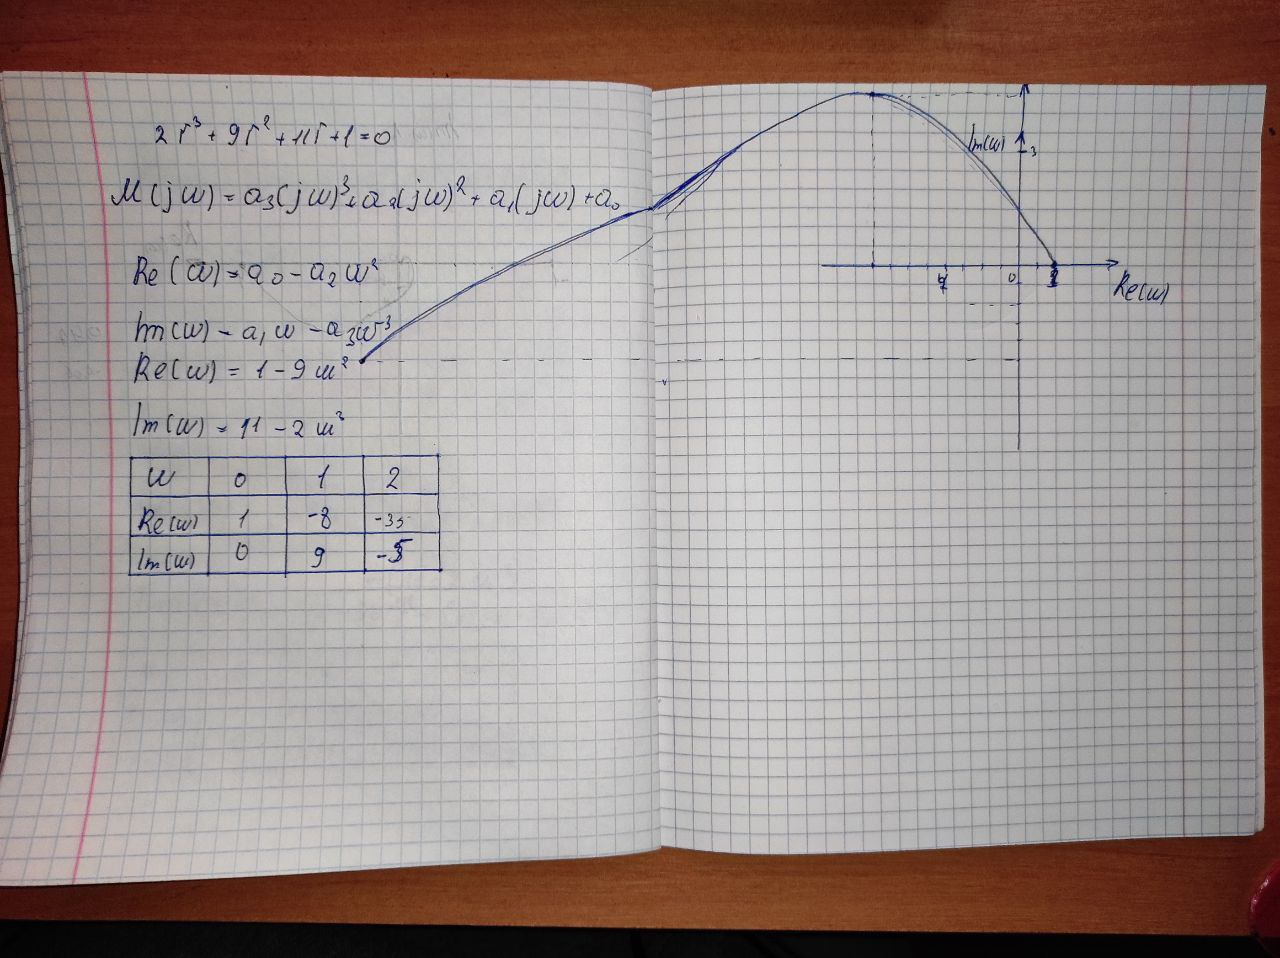 2r³ + 9r² + 11r + 1 = 0
M(jω) = a₃(jω)³ + a₂(jω)² + a₁(jω) + a₀
Re(ω) = a₀ - a₂ω²
Im(ω) - a₁ω - a₃ω³
Re(ω) = 1 - 9ω²
Im(ω) = 11 - 2ω³
ω 0 1 2
Re(ω) 1 -8 -35
Im(ω) 0 9 -5
Im(ω)
3
0
Re(ω)